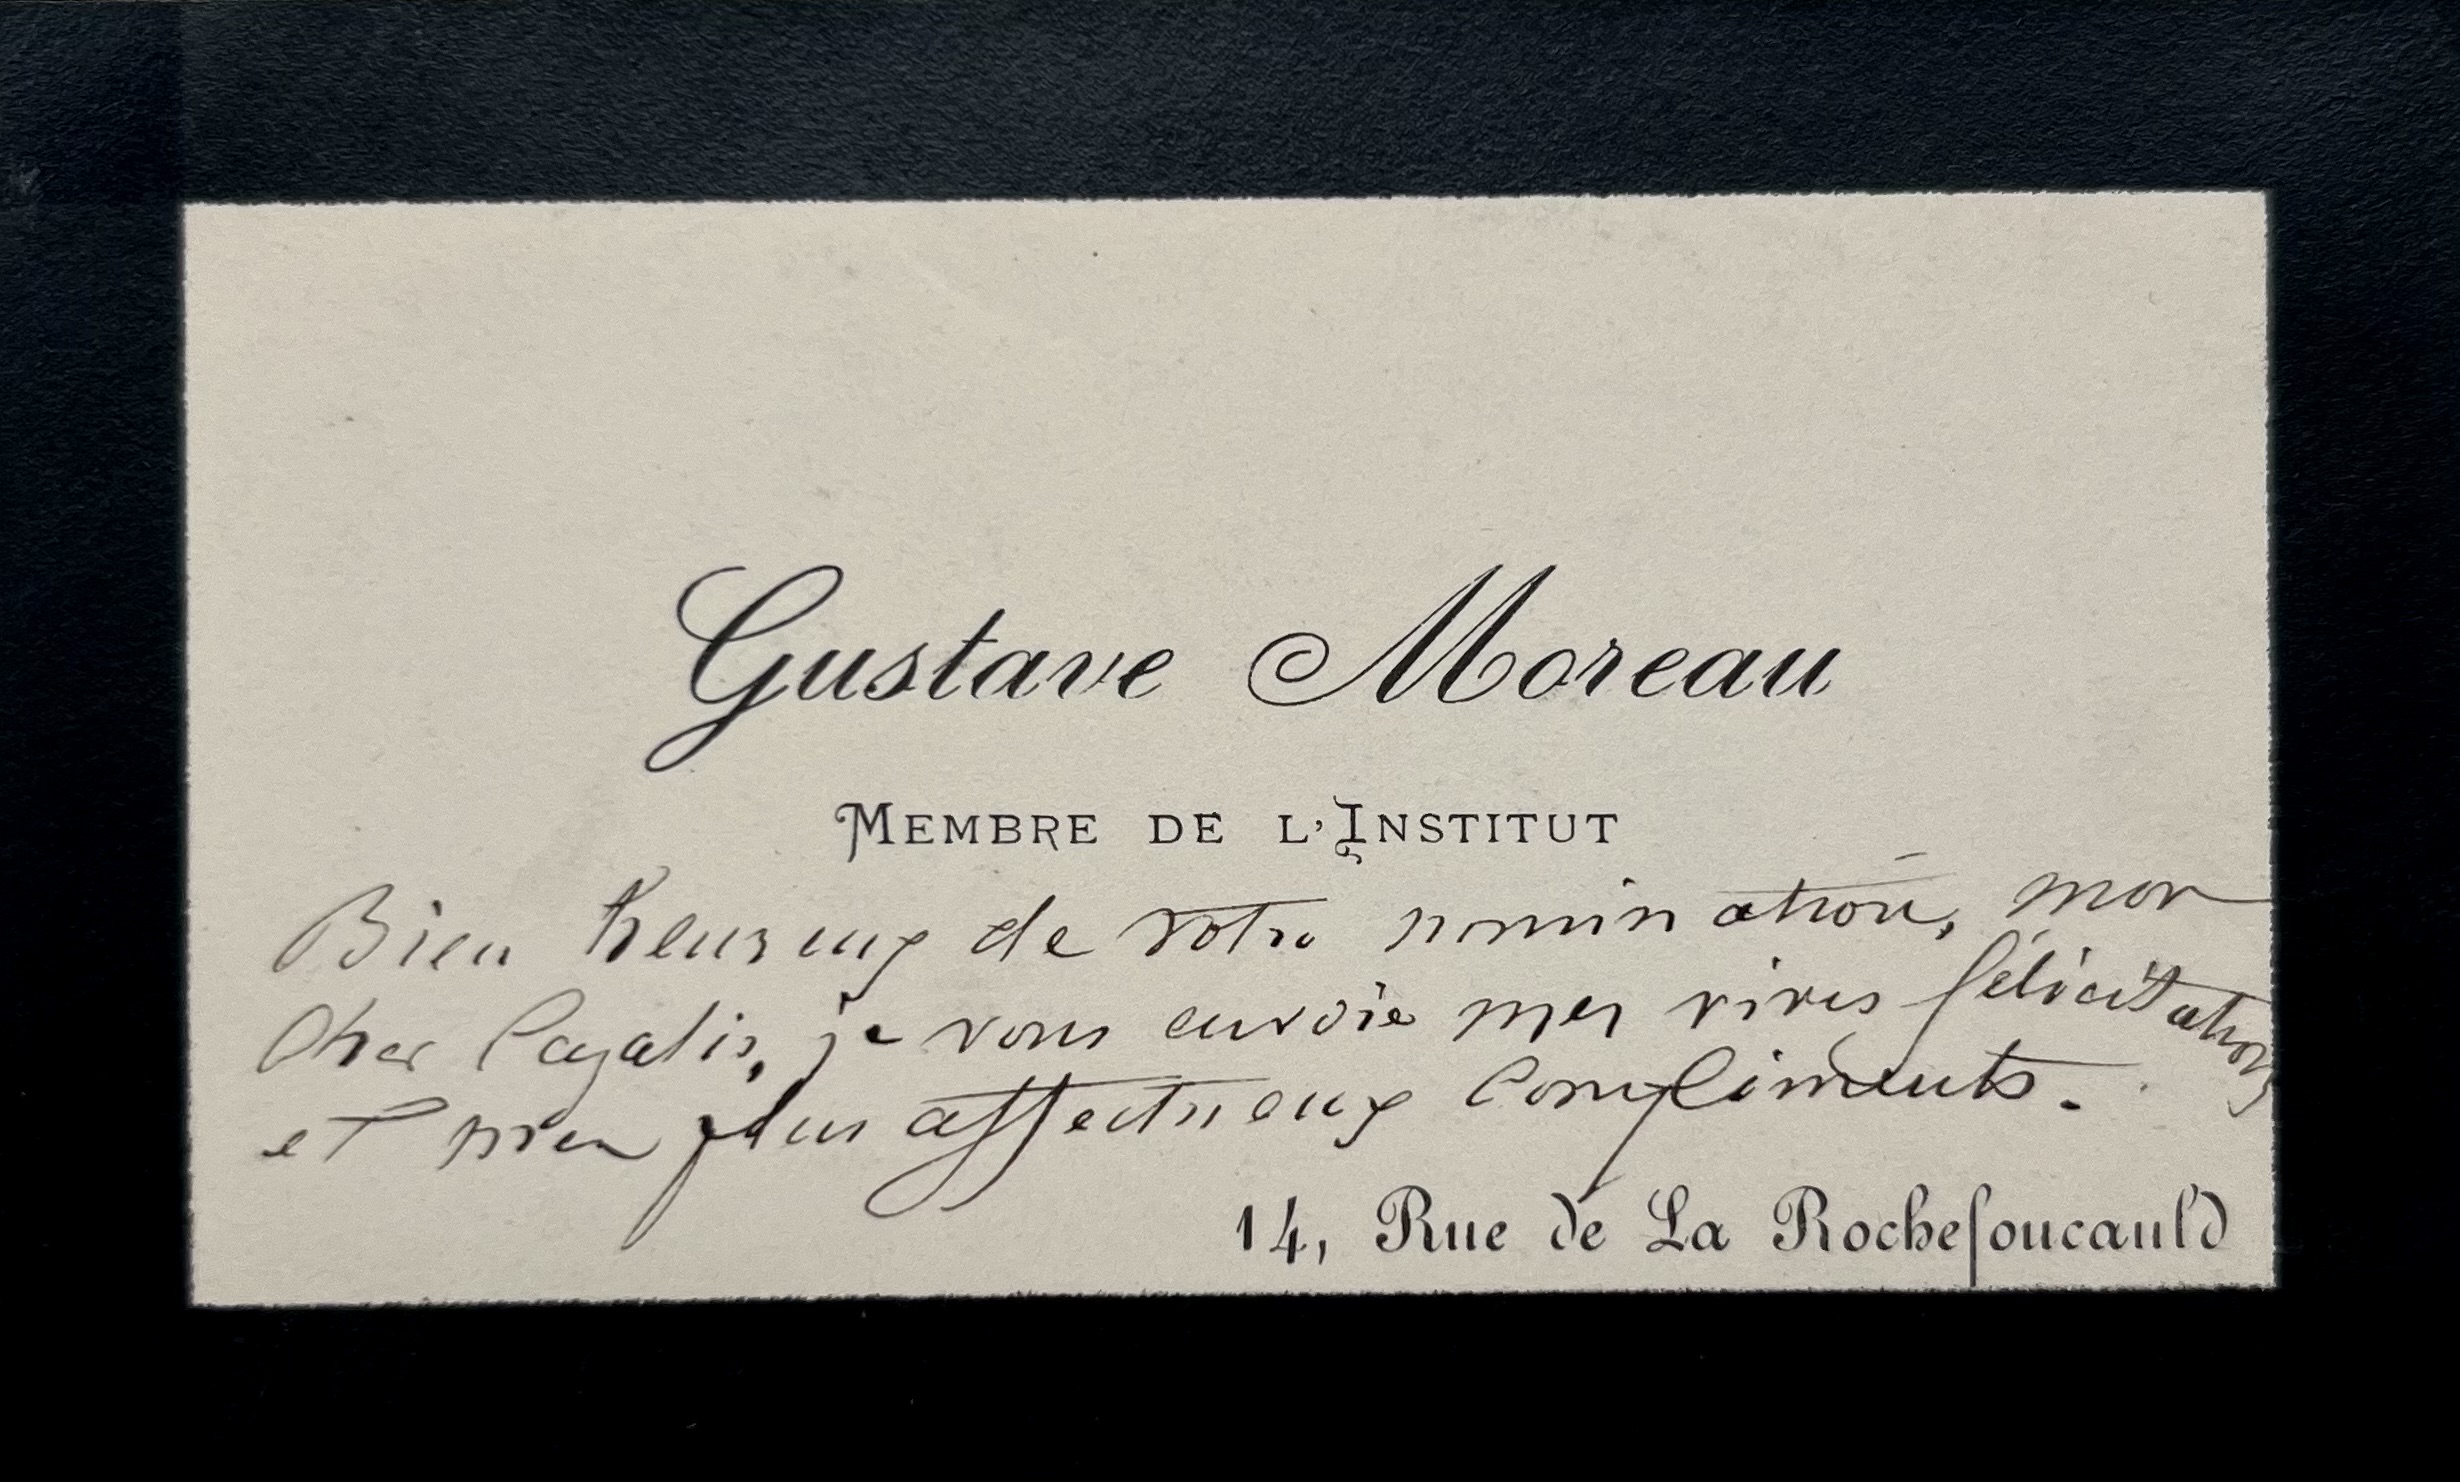 Gustave Moreau
MEMBRE DE L'INSTITUT
Bien heureux de votre nomination, mon
cher Cazalis, je vous envoie mes vives félicitations
et mes plus affectueux compliments.
14, Rue de La Rochefoucauld